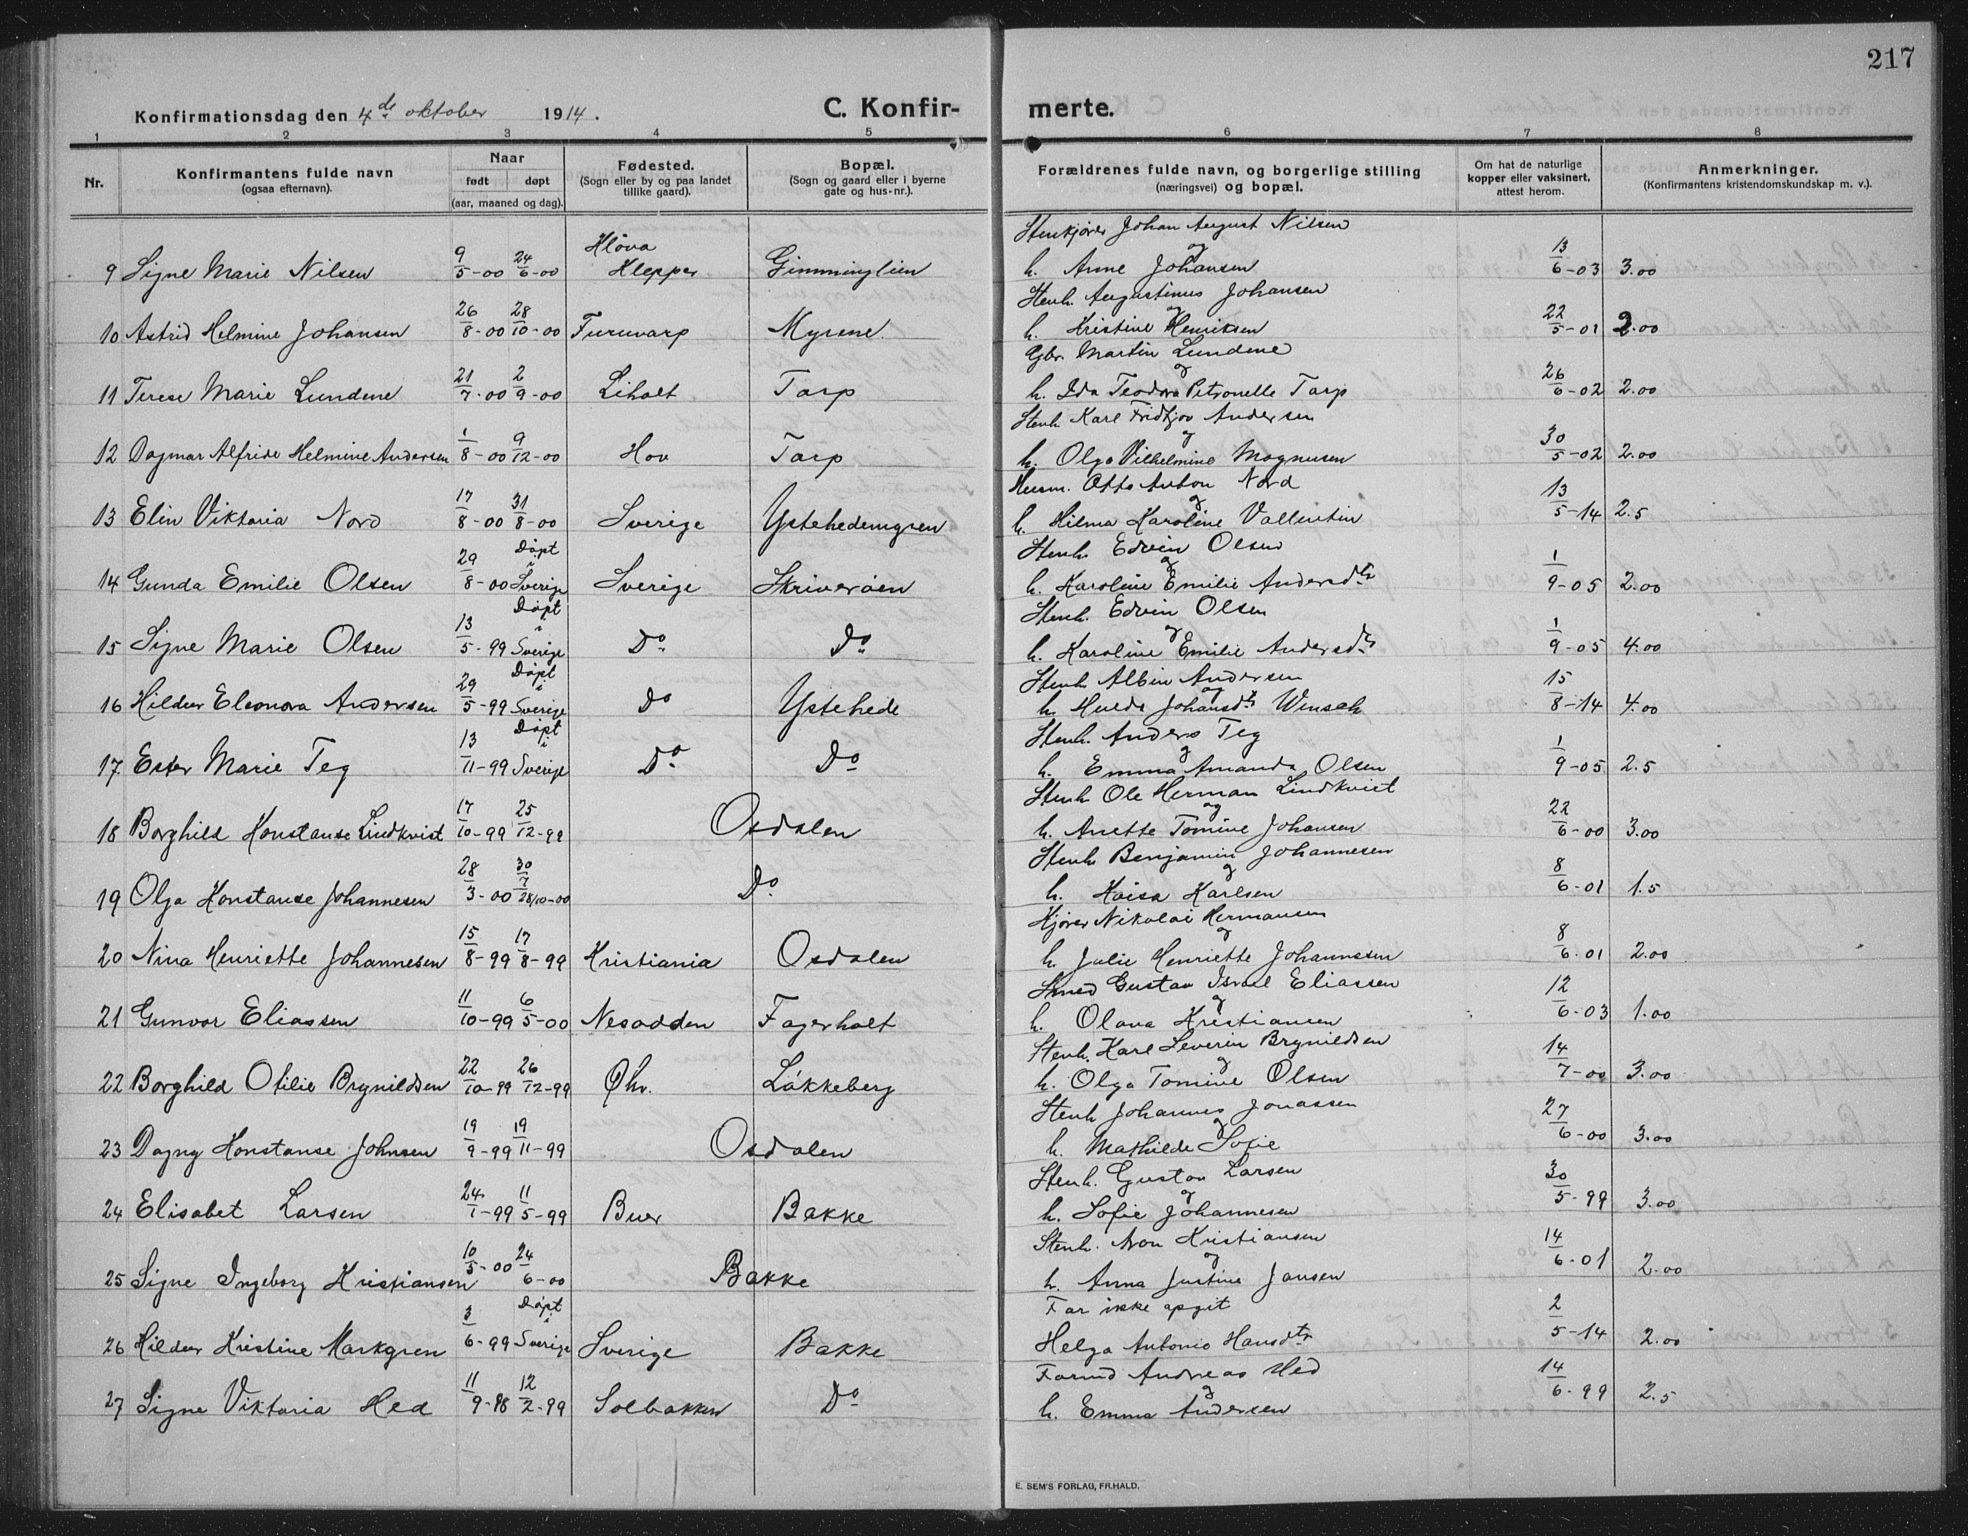 217
Konfirmationsdag den 4de oktober 1914.
C. Konfir-
merte.
1 2 3 4 5 6 7 8
Nr.
Konfirmantens fulde navn
(ogsaa efternavn).
Naar
født døpt
(aar, maaned og dag).
Fødested.
(Sogn eller by og paa landet
tillike gaard).
Bopæl.
(Sogn og gaard eller i byerne
gate og hus-nr.).
Forældrenes fulde navn, og borgerlige stilling
(næringsvei) og bopæl.
Om hat de naturlige
kopper eller vaksinert,
attest herom.
Anmerkninger.
(Konfirmantens kristendomskundskap m. v.).
Stenkjører Johan August Nilsen
9 Signe Marie Nilsen 9/5-00 24/6-00 Kløva Klepper Gimminglien og h. Anne Johansen 13/6-03 3.00
Stenh. Augustinus Johansen
10 Astrid Helmine Johansen 26/8-00 28/10-00 Furuvarp Myrene. og h. Kristine Henriksen 22/5-01 2.00
Gbr. Martin Lundene
11 Terese Marie Lundene 21/7-00 2/9-00 Liholt Torp og h. Ida Teodora Petronelle Torp 26/6-02 2.00
Stenh Karl Fridtjov Andersen
12 Dagmar Alfride Helmine Andersen 1/8-00 9/12-00 Hov Torp og h. Olga Vilhelmine Magnusen 30/5-02 2.00
Husm. Otto Anton Nord
13 Elin Viktoria Nord 17/8-00 31/8-00 Sverige Ystehedemyren og h. Hilma Karoline Vallentin 13/5-14 2.5
Stenh. Edvin Olsen
14 Gunda Emilie Olsen 29/8-00 Døpt i Sverige Sverige Skriverøen og h. Karoline Emilie Andersdtr 1/9-05 2.00
Stenh. Edvin Olsen
15 Signe Marie Olsen 13/5-99 Døpt i Sverige Do Do og h. Karoline Emilie Andersdtr 1/9-05 4.00
Stenh Albin Andersen
16 Hildur Eleonora Andersen 29/5-99 Døpt i Sverige Do Ystehede og h. Hulda Johansdtr 15/8-14 4.00
Stenh. Anders Teg
17 Ester Marie Teg 13/11-99 Døpt i Sverige Do Do og h. Emma Amanda Olsen 1/9-05 2.5
Stenh Ole Herman Lindkvist
18 Borghild Konstanse Lindkvist 17/10-99 25/12-99 Osdalen og h. Anette Tomine Johansen 22/6-00 3.00
Stenh Benjamin Johannesen
19 Olga Konstanse Johannesen 28/3-00 30/7 28/10-00 Do og h. Kaisa Karlsen 8/6-01 1.5
Kjører Nikolai Hermansen
20 Nina Henriette Johannesen 15/8-99 17/8-99 Kristiania Osdalen og h. Julie Henriette Johannesen 8/6-01 2.00
Smed Gustav Israel Eliassen
21 Gunvor Eliassen 11/10-99 6/5-00 Nesodden Fagerholt og h. Olava Kristiansen 12/6-03 1.00
Stenh. Karl Severin Brynildsen
22 Borghild Otilie Brynildsen 22/10-99 26/12-99 Øhr. Løkkeberg og h. Olga Tomine Olsen 14/7-00 3.00
Stenh Johannes Jonassen
23 Dagny Konstanse Johnsen 19/9-99 19/11-99 Osdalen og h. Mathilde Sofie 27/6-00 3.00
Stenh. Gustav Larsen
24 Elisabet Larsen 24/1-99 11/5-99 Buer Bakke og h. Sofie Johannesen 30/5-99 3.00
Stenh. Aron Kristiansen
25 Signe Ingeborg Kristiansen 10/5-00 24/6-00 Bakke og h. Anna Justine Jansen 14/6-01 2.00
Far ikke opgit
26 Hildur Kristine Markgren 3/6-99 Døpt i Sverige Sverige Bakke Helga Antonio Hansdtr 2/5-14 2.00
Forind Andreas Hed
27 Signe Viktoria Hed 11/9-98 12/2-99 Solbakken Do og h. Emma Andersen 14/6-99 2.5
E. SEM'S FORLAG, FR.HALD.